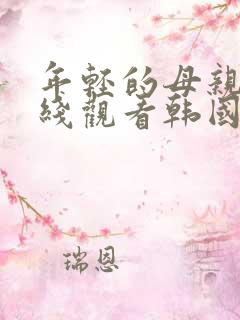 年輕的母親
綫觀看韓國
瑞恩